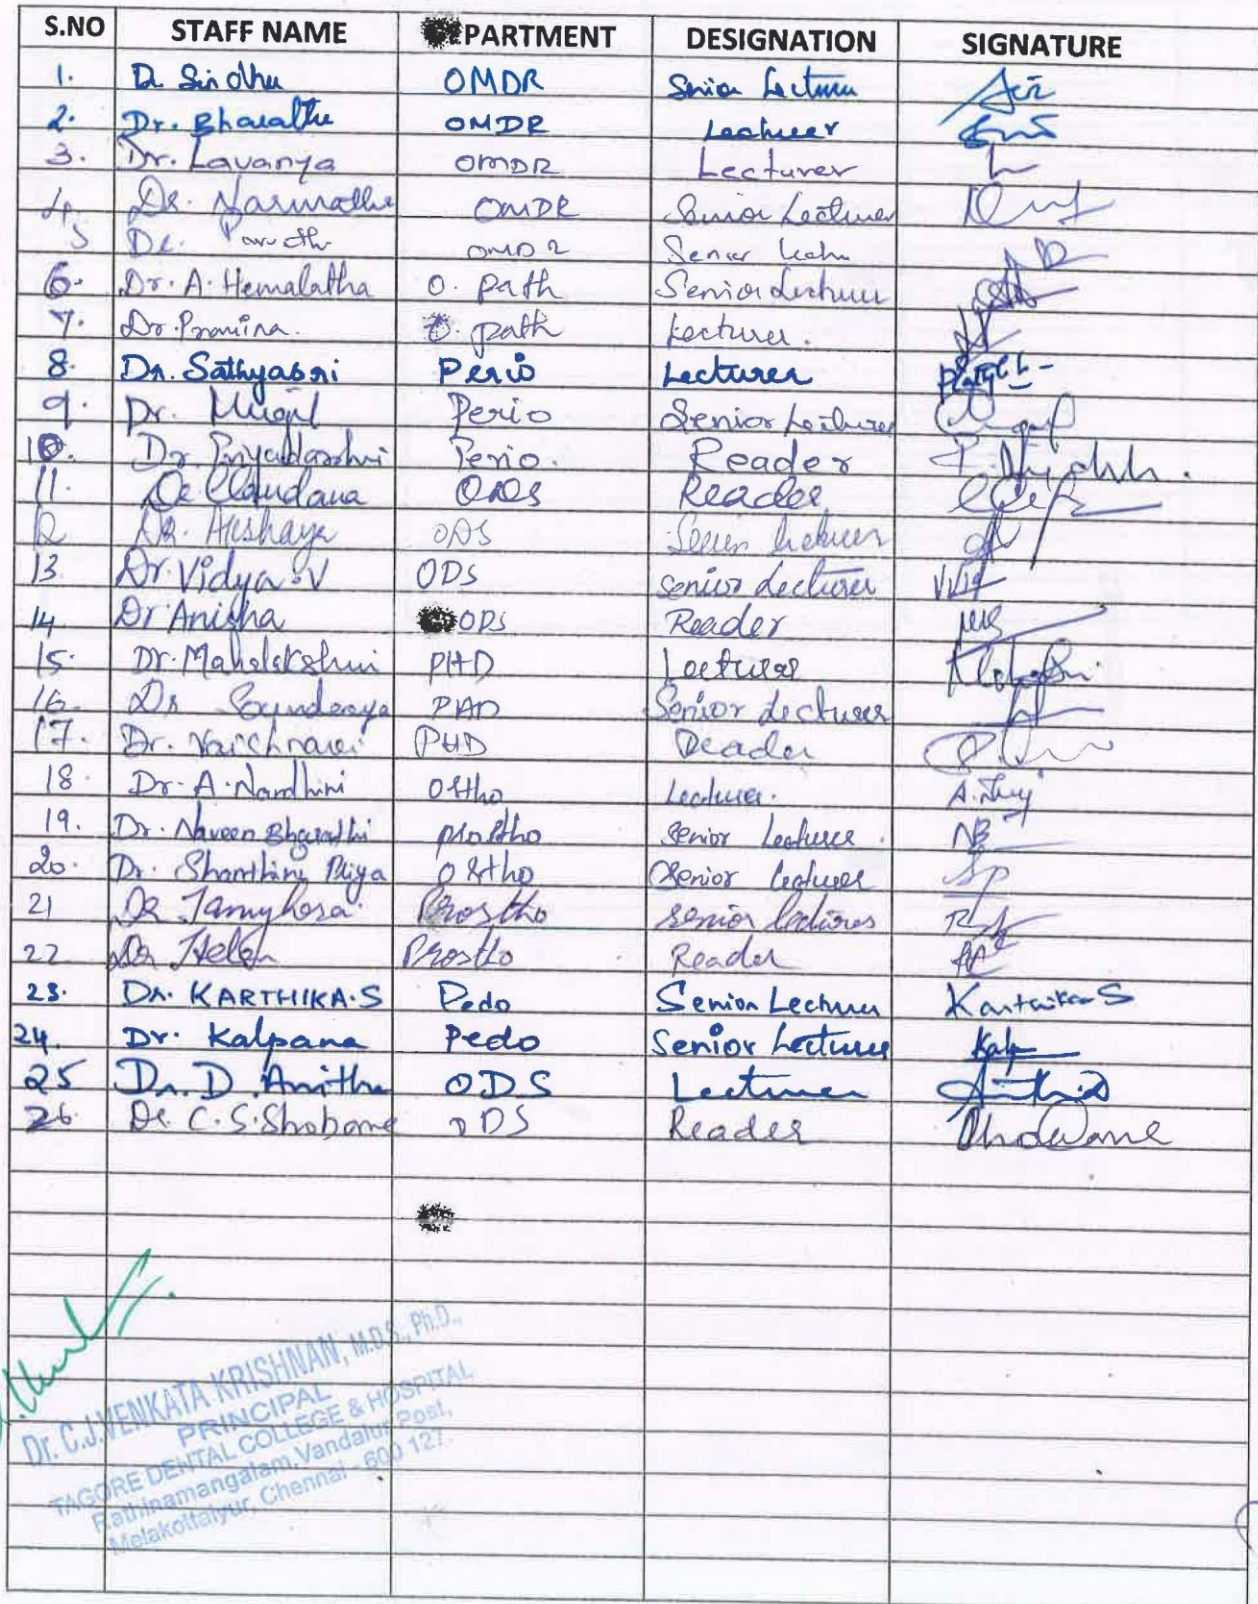 S.NO STAFF NAME PARTMENT DESIGNATION SIGNATURE
1. Dr Sindhu OMDR Senior Lecturer
2. Dr. Bharathi OMDR Lecturer
3. Dr. Lavanya OMDR Lecturer
4. Dr. Narmatha OMDR Senior Lecturer
5 Dr. OMDR Senior
6. Dr. A. Hemalatha O. Path Senior Lecturer
7. Dr. Pramina. O. path Lecturer.
8. Dr. Sathyasri Perio Lecturer
9. Dr. Mugil Perio Senior Lecturer
10. Dr. Priyadarshni Perio. Reader
11. Dr Chandana ODS Reader
12 Dr. Akshaya ODS Senior Lecturer
13 Dr. Vidya V ODS Senior Lecturer
14 Dr Anisha ODS Reader
15. Dr. Mahalakshmi PHD Lecturer
16. Dr Soundarya PHD Senior Lecturer
17. Dr. Vaishnavi PHD Reader
18. Dr. A. Nandhini Ortho Lecturer.
19. Dr. Naveen Bharathi prostho Senior Lecturer. NB
20. Dr. Shanthini Priya Ortho Senior lecturer SP
21 Dr Prostho senior lecturer
22 Dr Helen Prostho Reader
23. Dr. KARTHIKA.S Pedo Senior Lecturer Karthika S
24. Dr. Kalpana Pedo Senior Lecturer
25 Dr. D Anitha ODS Lecturer
26. Dr. C.S. Shobana ODS Reader
Dr. C.J.VENKATA KRISHNAN, M.D.S., Ph.D.,
PRINCIPAL
TAGORE DENTAL COLLEGE & HOSPITAL
Rathinamangalam, Vandalur Post,
Melakottaiyur, Chennai - 600 127.